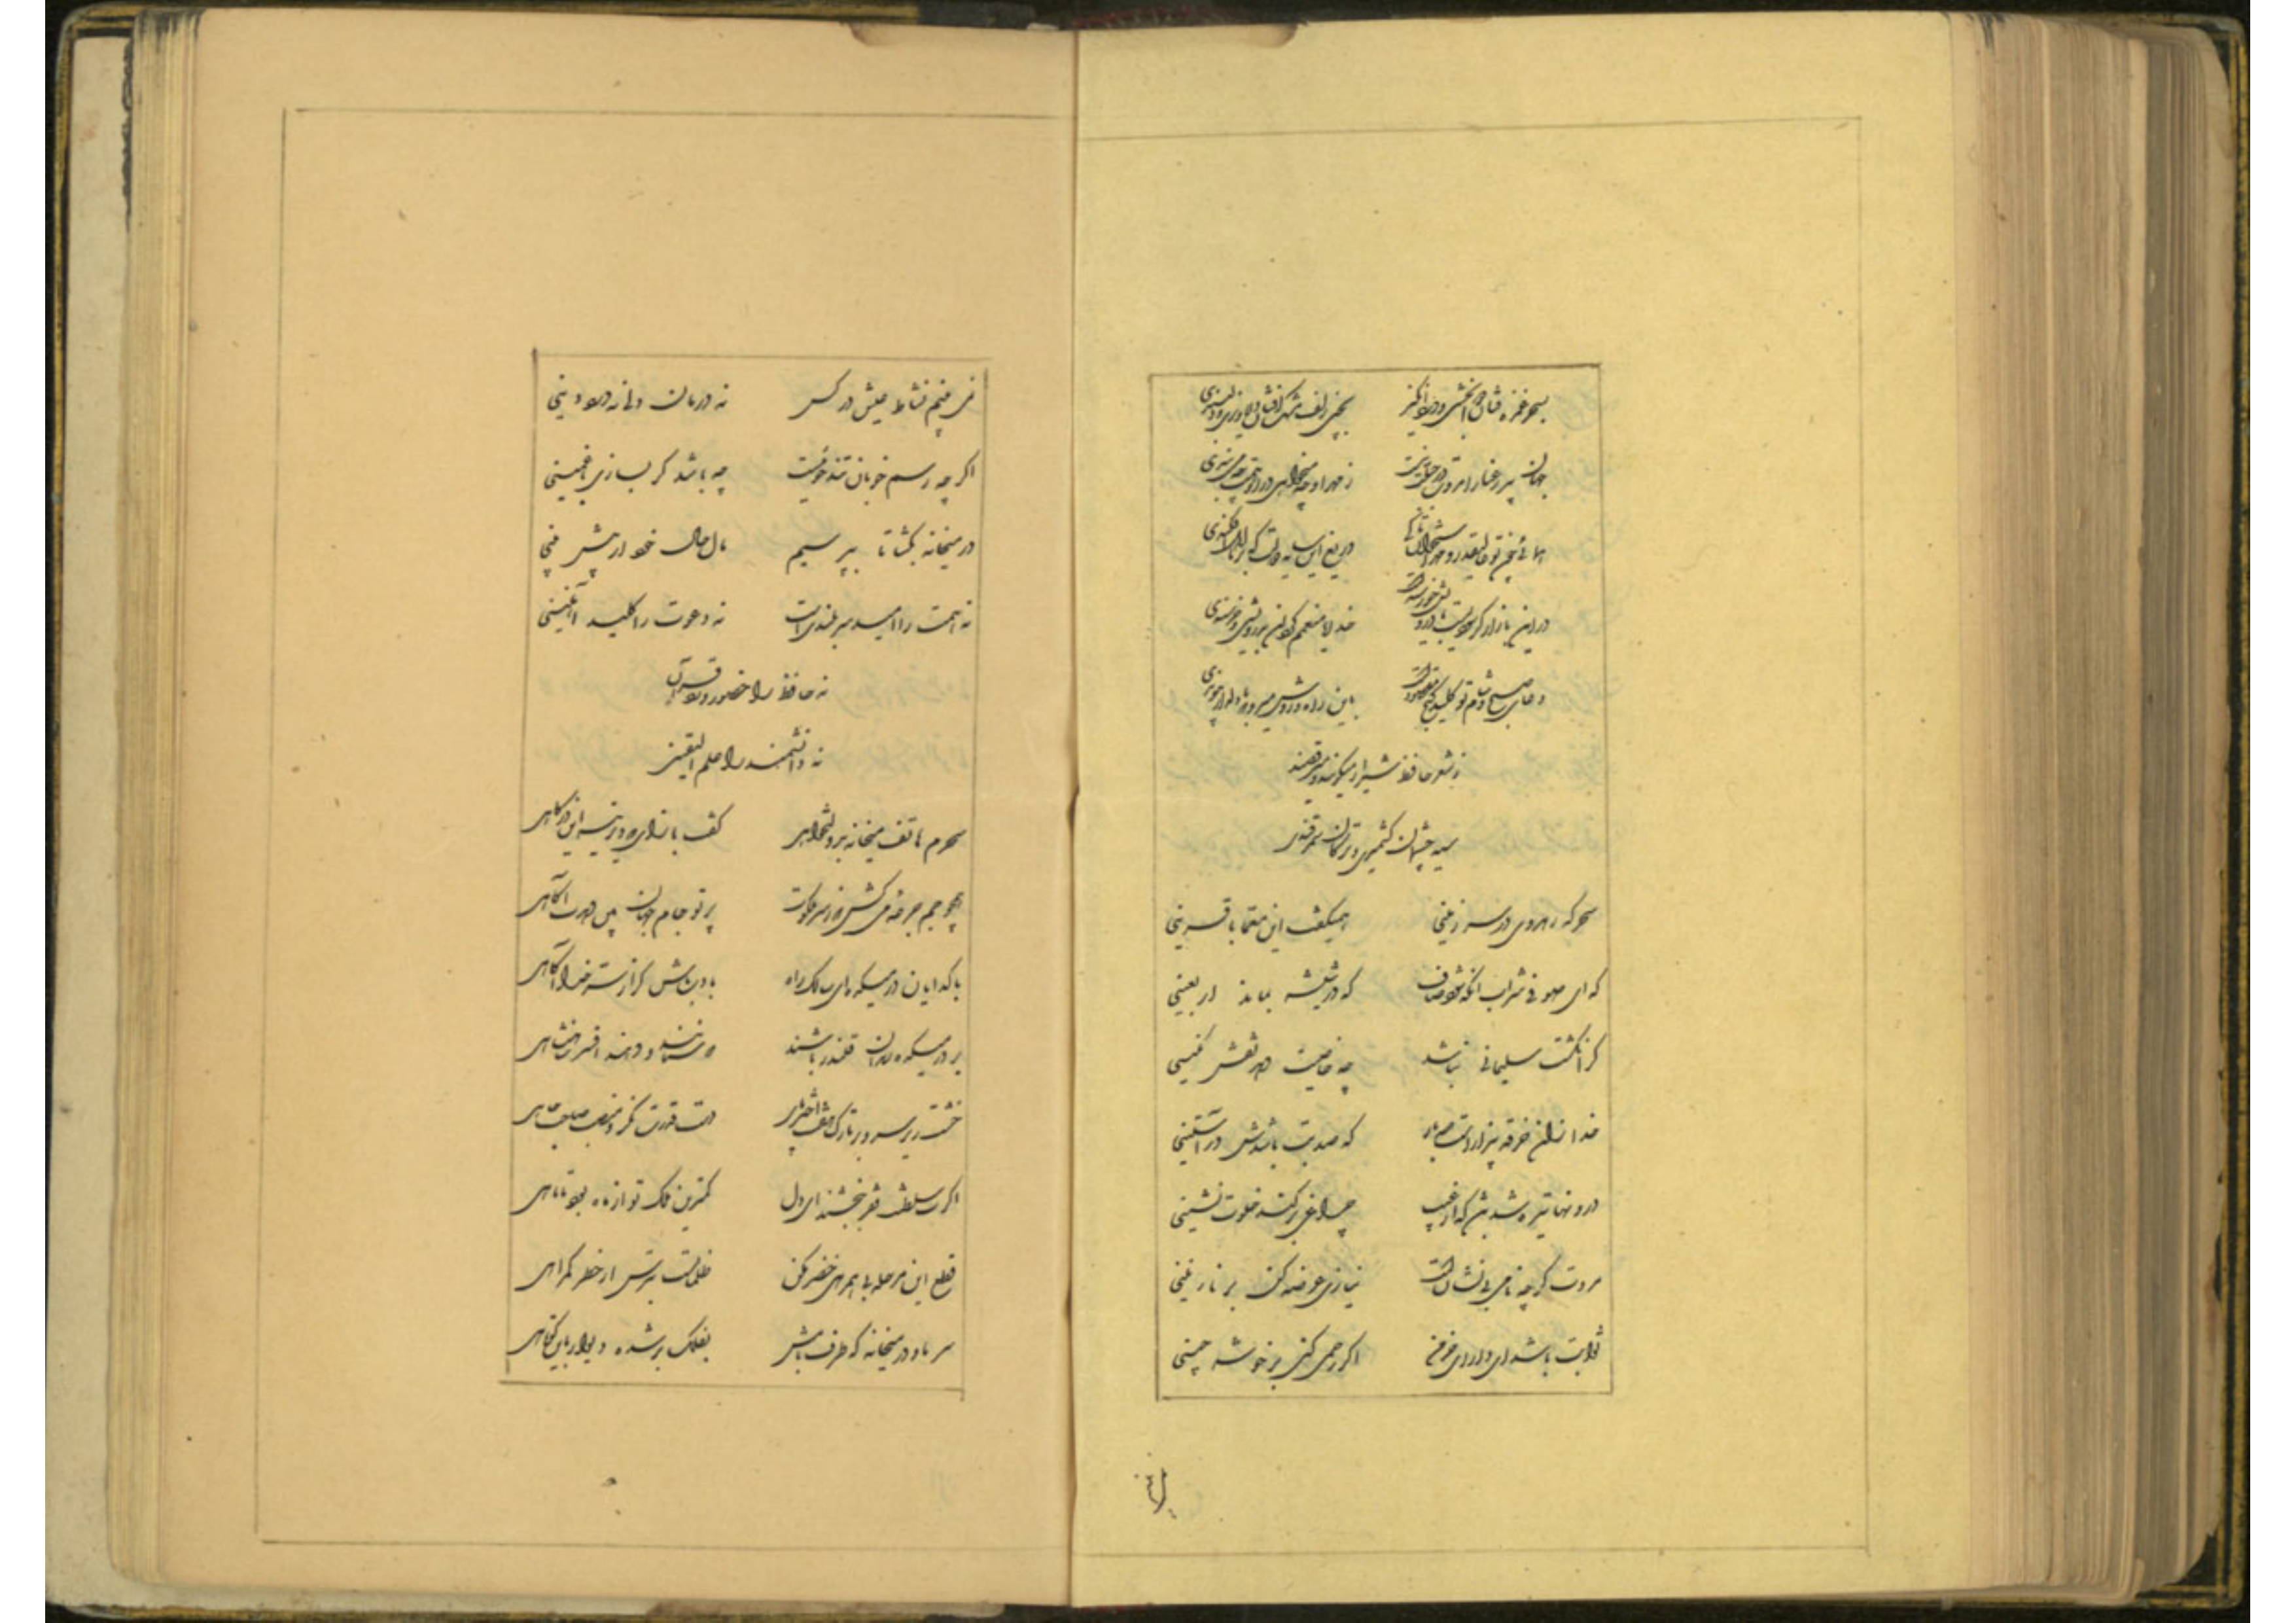 بسحر غمزه فتان دوا بخشی و درد انگیز بچین زلف مشک افشان دلاویزی و دلبندی
جهان پیر رعنا را مروت در جبلت نیست ز مهر او چه میخواهی در او همت چه می‌بندی
همائی چون تو عالیقدر و حرص استخوان تا کی دریغ این سایه دولت که بر نااهل افکندی
در این بازار اگر سودیست با درویش خورسندست خدایا منعمم گردان بدرویشی و خورسندی
دعای صبح و شام تو کلید گنج مقصودست باین راه و روش میرو که با دلدار پیوندی
بشعر حافظ شیراز میگویند و میرقصند
سیه چشمان کشمیری و ترکان سمرقندی
سحر که رهروی در سرزمینی همیگفت این معما با قرینی
که ای صوفی شراب آنکه شود صاف که در شیشه بماند اربعینی
گر انگشت سلیمانی نباشد چه خاصیت دهد نقش نگینی
خدا زان خرقه بیزارست صد بار که صد بت باشدش در آستینی
درونها تیره شد باشد که از غیب چراغی بر کند خلوت نشینی
مروت گرچه نامی بی نشان است نیازی عرضه کن بر نازنینی
ثوابت باشد ای دارای خرمن اگر رحمی کنی بر خوشه چینی
نمی بینم نشاط عیش در کس نه درمان دلی نه درد دینی
اگرچه رسم خوبان تندخوئیست چه باشد گر بسازی با غمینی
در میخانه بگشا تا بپرسیم مآل حال خود از پیش بینی
نه همت را امید سربلندی است نه دعوت را کلید آهنینی
نه حافظ را حضور درد قرآن
نه دانشمند را علم الیقینی
سحرم هاتف میخانه بدولتخواهی گفت بازآی که دیرینه این درگاهی
همچو جم جرعه می کش که ز سر ملکوت پرتو جام جهان بین دهدت آگاهی
با گدایان در میکده ای سالک راه با ادب باش گر از سر خدا آگاهی
بر در میکده رندان قلندر باشند که ستانند و دهند افسر شاهنشاهی
خشت زیر سر و بر تارک هفت اختر پای دست قدرت نگر و منصب صاحب جاهی
اگرت سلطنت فقر ببخشند ای دل کمترین ملک تو از ماه بود تا ماهی
قطع این مرحله بی همرهی خضر مکن ظلماتست بترس از خطر گمراهی
سر ما و در میخانه که طرف بامش بفلک بر شده دیوار باین کوتاهی